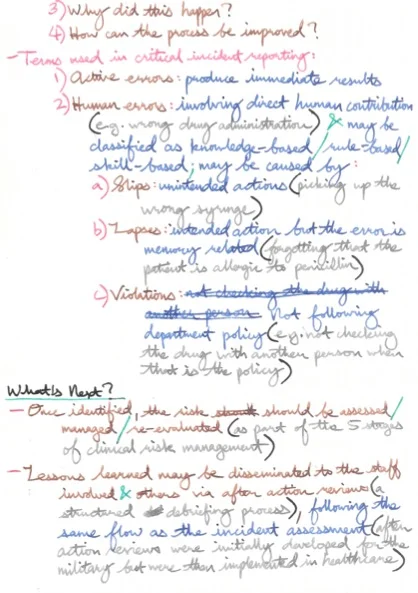 3) Why did this happen?
4) How can the process be improved?
- Terms used in critical incident reporting:
1) Active errors: produce immediate results
2) Human errors: involving direct human contribution
(e.g. wrong drug administration) & may be
classified as knowledge-based/rule-based/
skill-based, may be caused by:
a) Slips: unintended actions (picking up the
wrong syringe)
b) Lapses: intended action but the error is
memory related (forgetting that the
patient is allergic to penicillin)
c) Violations: not checking the drug with
another person Not following
department policy (e.g. not checking
the drug with another person when
that is the policy)
What's Next?
- Once identified, the risk should be assessed/
managed/re-evaluated (as part of the 5 stages
of clinical risk management)
- Lessons learned may be disseminated to the staff
involved & others via after action reviews (a
structured debriefing process), following the
same flow as the incident assessment (after
action reviews were initially developed for the
military but were then implemented in healthcare)